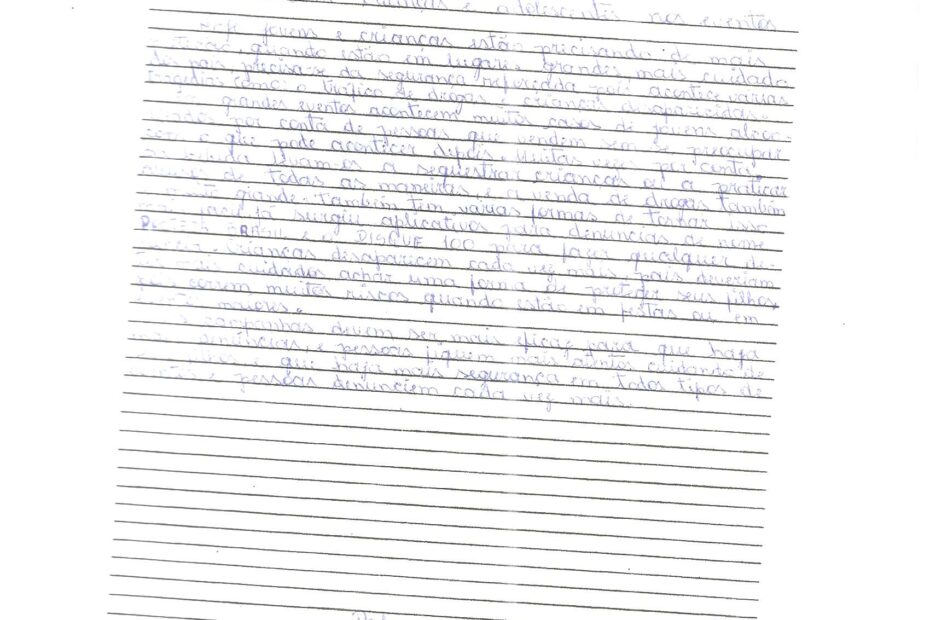 crianças e adolescentes nos eventos
Hoje jovens e crianças estão precisando de mais
quando estão em lugares grandes mais cuidado
dos pais precisa-se da segurança reforçada pois acontece várias
tragédias como o tráfico de drogas e crianças desaparecidas.
grandes eventos acontecem muitos casos de jovens alcoo-
por conta de pessoas que vendem sem se preocupar
com o que pode acontecer depois. Muitas vezes por conta
da bebida levam-os a sequestrar crianças ou a praticar
de todas as maneiras, e a venda de drogas também
muito grande. Também tem várias formas de
já surgiu aplicativos para denúncias de nome
BRASIL e o DISQUE 100 para fazer qualquer de-
crianças desaparecem cada vez mais, pais deveriam
ter mais cuidados achar uma forma de proteger seus filhos
pois correm muitos riscos quando estão em festas ou em
maiores.
campanhas devem ser mais eficaz para que haja
mais denúncias, e pessoas fiquem mais atentos cuidando de
filhos e que haja mais segurança em todos tipos de
e pessoas denunciem cada vez mais.